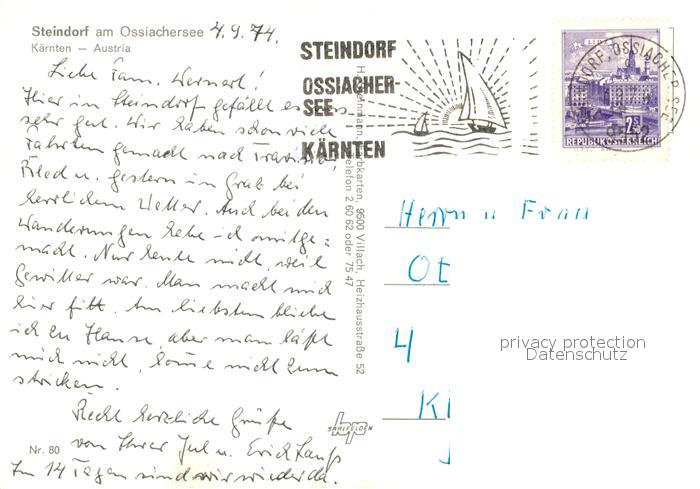 Steindorf am Ossiachersee 4.9.74.
Kärnten — Austria
Liebe Fam. Wernert!
Hier in Steindorf gefällt es uns
sehr gut. Wir haben schon viele
Fahrten gemacht nach
Ried u. gestern in Graz bei
herrlichem Wetter. Auch bei den
Wanderungen habe ich mitge=
macht. Nur heute nicht, weil
Gewitter war. Man macht mich
hier fitt. Am liebsten bliebe
ich zu Hause, aber man läßt
mich nicht, komme nicht zum
stricken.
Recht herzliche Grüße
von Ihrer Jul u. Erich
In 14 Tagen sind wir wieder da.
Nr. 80
STEINDORF
OSSIACHER-
SEE
KÄRNTEN
9500 Villach, Heizhausstraße 52
Telefon 2 60 62 oder 75 47
hp
SAALFELDEN
OSSIACHER SEE
2S
REPUBLIK ÖSTERREICH
Herrn u Frau
Ot
4
Ki
privacy protection
Datenschutz